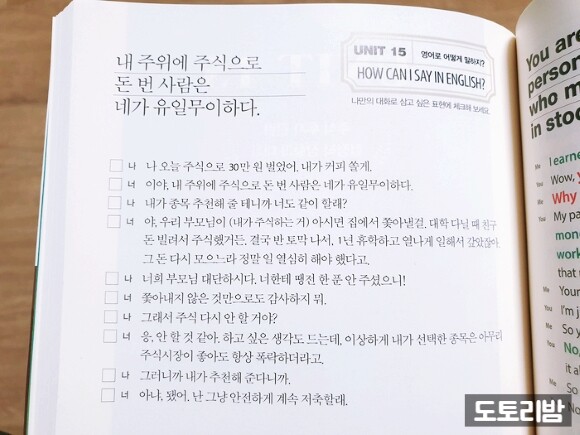 내 주위에 주식으로
돈 번 사람은
네가 유일무이하다.
UNIT 15 영어로 어떻게 말하지?
HOW CAN I SAY IN ENGLISH?
나만의 대화로 삼고 싶은 표현에 체크해 보세요.
나 나 오늘 주식으로 30만 원 벌었어. 내가 커피 쏠게.
너 이야, 내 주위에 주식으로 돈 번 사람은 네가 유일무이하다.
나 내가 종목 추천해 줄 테니까 너도 같이 할래?
너 야, 우리 부모님이 (내가 주식하는 거) 아시면 집에서 쫓아낼걸. 대학 다닐 때 친구
돈 빌려서 주식했거든. 결국 반 토막 나서, 1년 휴학하고 열나게 일해서 갚았잖아.
그 돈 다시 모으느라 정말 일 열심히 해야 했다고.
나 너희 부모님 대단하시다. 너한테 땡전 한 푼 안 주셨으니!
너 쫓아내지 않은 것만으로도 감사하지 뭐.
나 그래서 주식 다시 안 할 거야?
너 응, 안 할 것 같아. 하고 싶은 생각도 드는데, 이상하게 내가 선택한 종목은 아무리
주식시장이 좋아도 항상 폭락하더라고.
나 그러니까 내가 추천해 준다니까.
너 아냐, 됐어. 난 그냥 안전하게 계속 저축할래.
You are
person
who m
in stoc
Me I earne
You Wow, y
Me Why
You My pa
mone
work
that
Me Your
You I'm j
Me So y
You No,
it al
Me So
You No
도토리밤